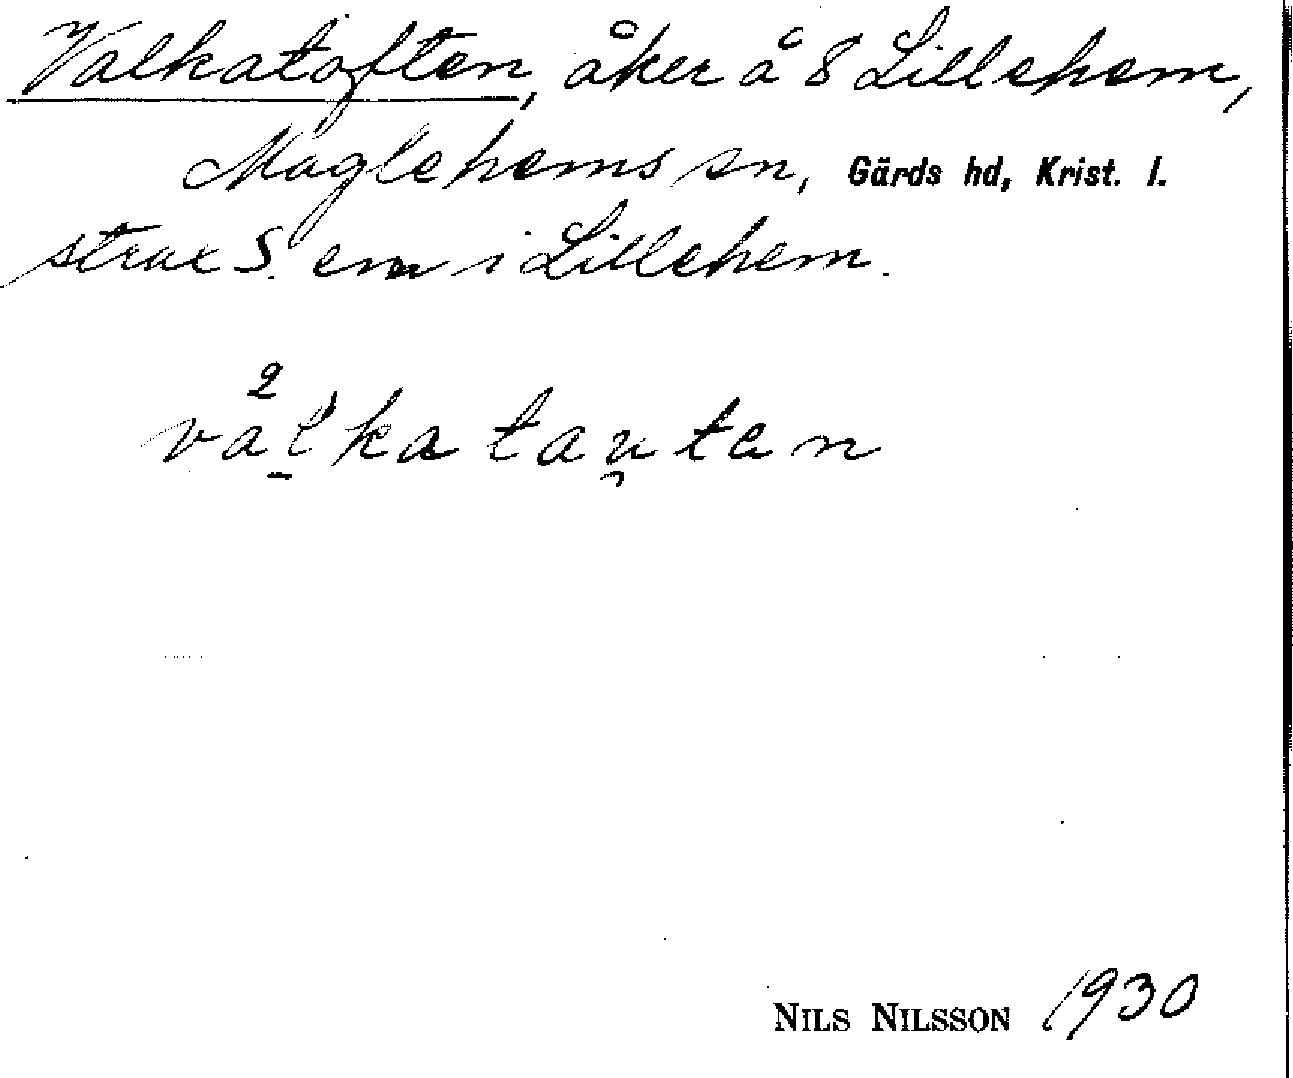 Valkatoften, åker å 8 Lillehem,
Maglehems sn, Gärds hd, Krist. l.
strax S. om i Lillehem.
va²lka tau̯tan
NILS NILSSON 1930